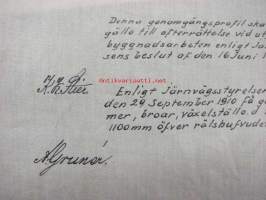 Denna genomgångsprofil ska
gälla till efterrättelse vid ut
byggnadsarbeten enligt Jär
sens beslut af den 16 Juni 1
Enligt Järnvägsstyrelser
den 29 September 1910 få g
mer, broar, växelställ. d
1100 mm öfver rälshufvude